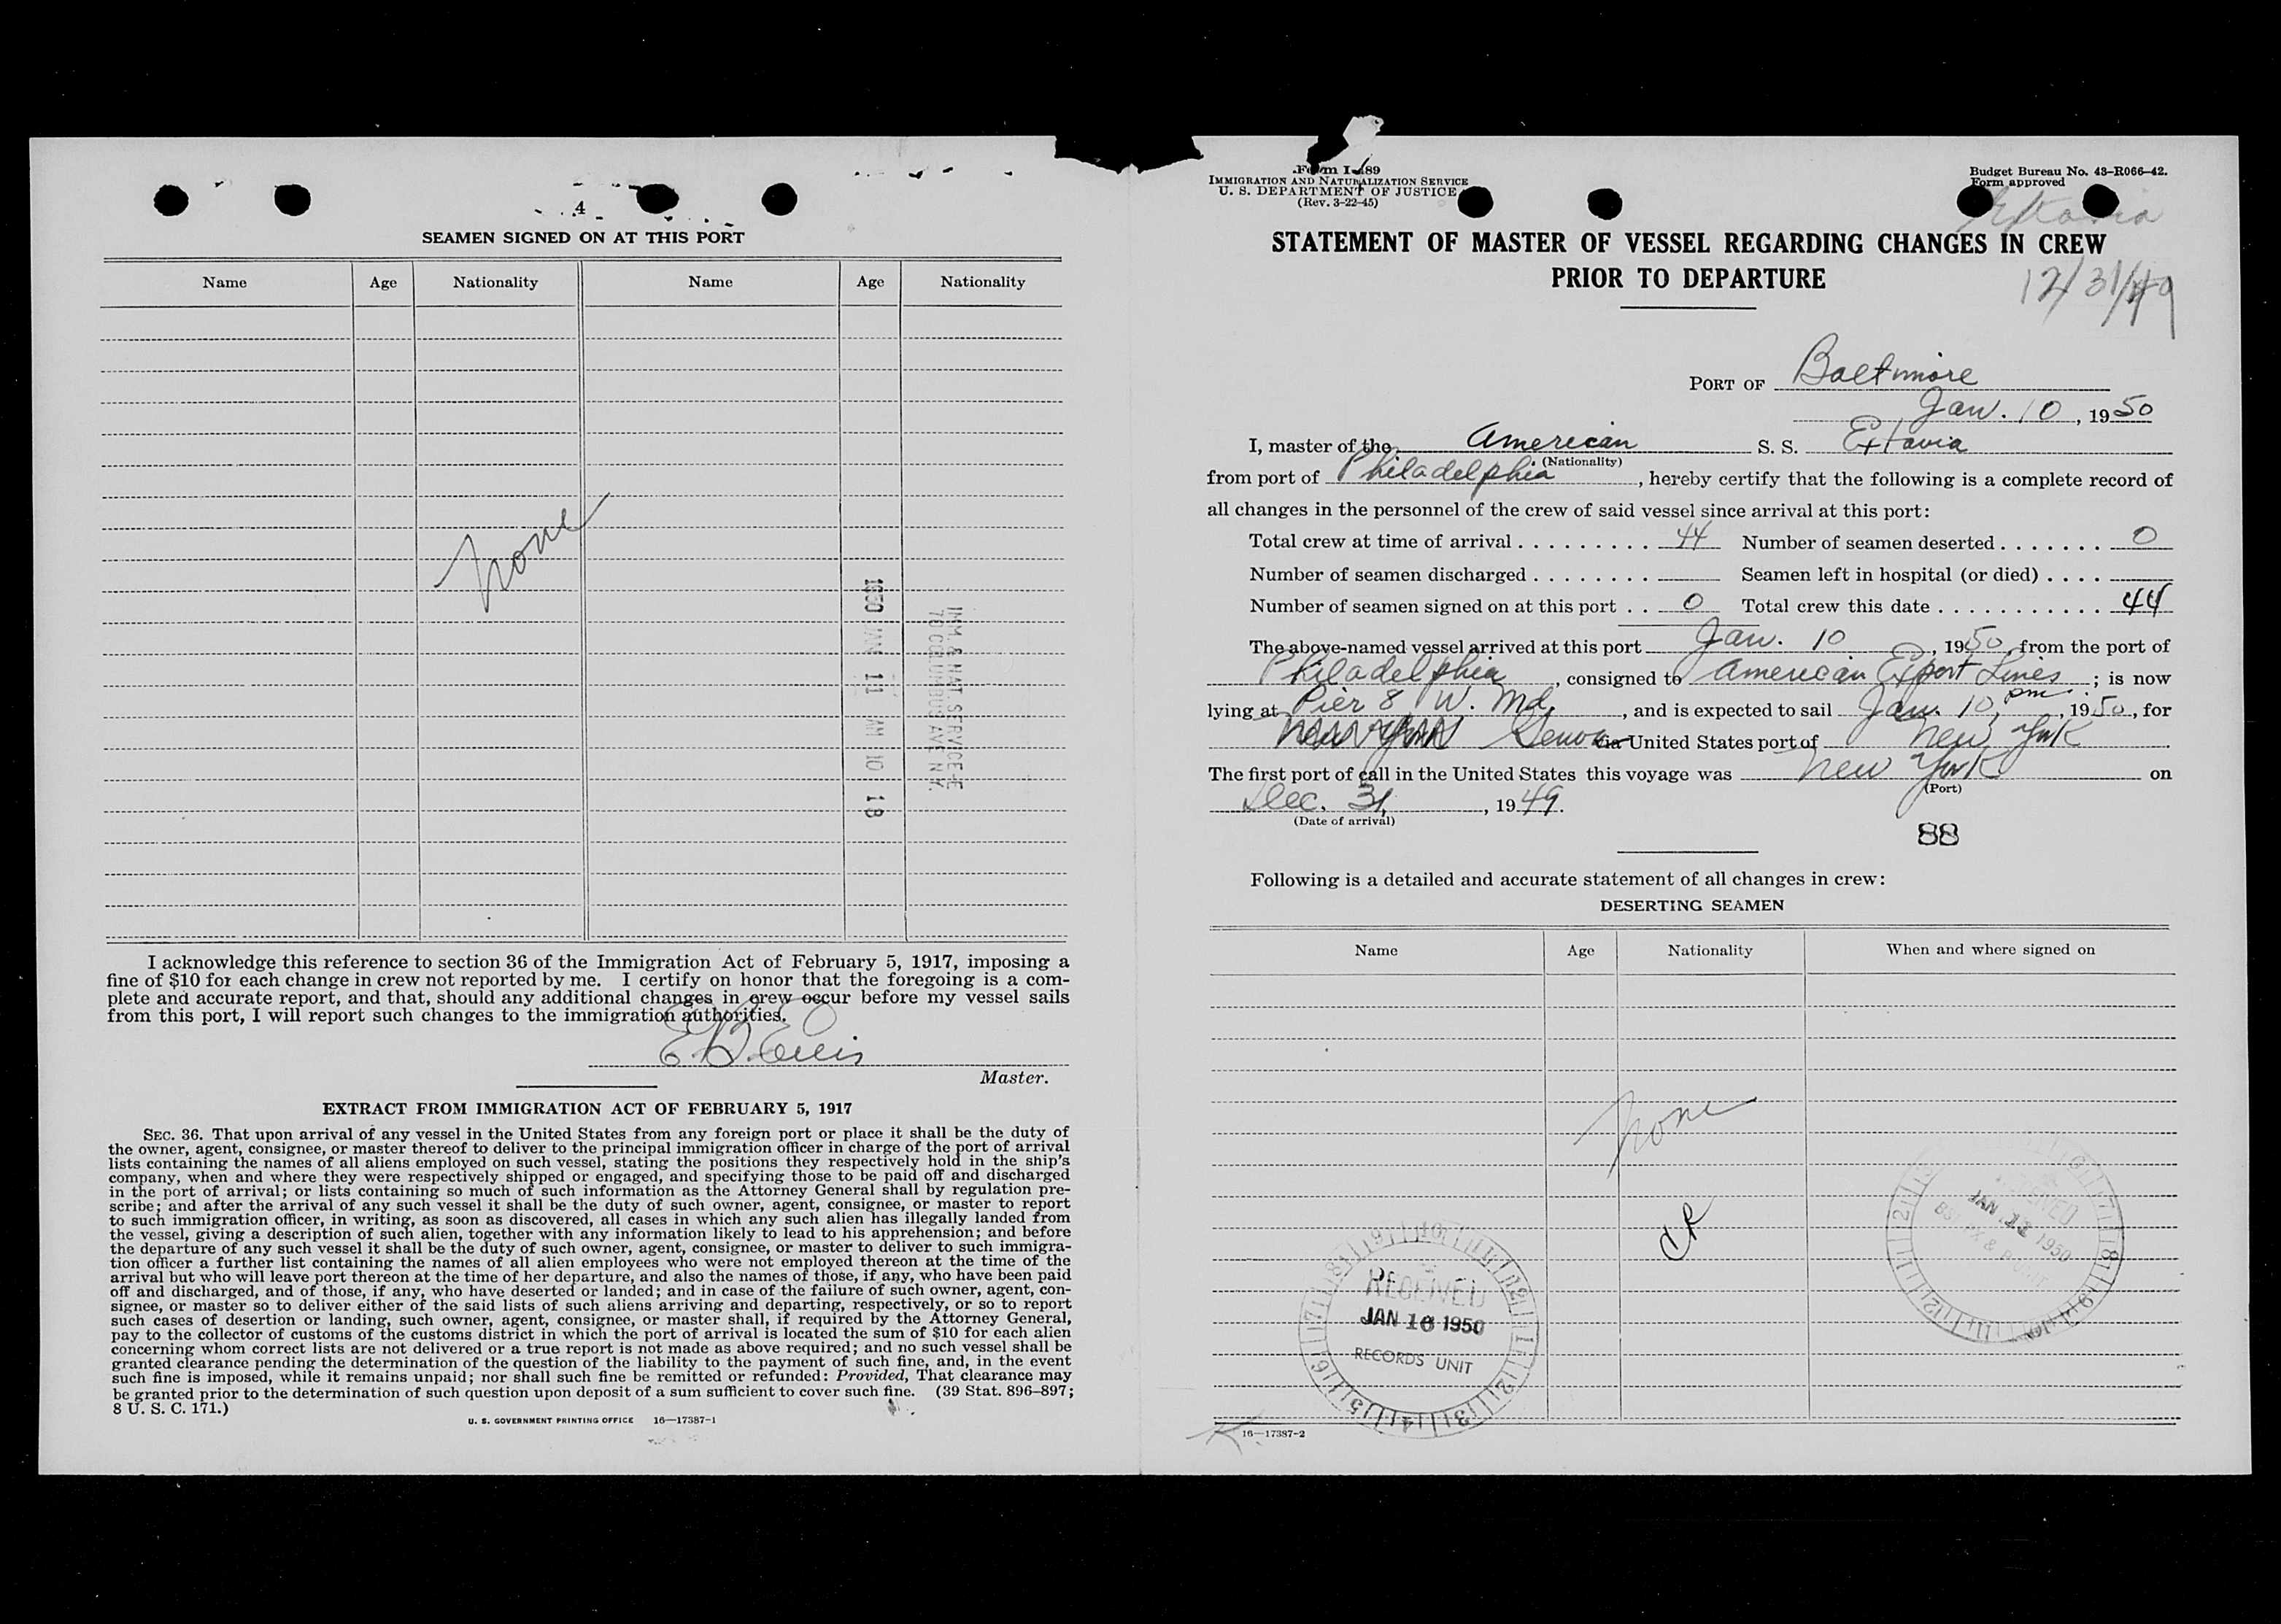 4
SEAMEN SIGNED ON AT THIS PORT
Name Age Nationality Name Age Nationality
None
1950 JAN 11 AM 10 18
IMM. & NAT. SERVICE
70 COLUMBUS AVE N.Y.
I acknowledge this reference to section 36 of the Immigration Act of February 5, 1917, imposing a
fine of $10 for each change in crew not reported by me. I certify on honor that the foregoing is a com-
plete and accurate report, and that, should any additional changes in crew occur before my vessel sails
from this port, I will report such changes to the immigration authorities.
E. B. Ellis
Master.
EXTRACT FROM IMMIGRATION ACT OF FEBRUARY 5, 1917
SEC. 36. That upon arrival of any vessel in the United States from any foreign port or place it shall be the duty of
the owner, agent, consignee, or master thereof to deliver to the principal immigration officer in charge of the port of arrival
lists containing the names of all aliens employed on such vessel, stating the positions they respectively hold in the ship's
company, when and where they were respectively shipped or engaged, and specifying those to be paid off and discharged
in the port of arrival; or lists containing so much of such information as the Attorney General shall by regulation pre-
scribe; and after the arrival of any such vessel it shall be the duty of such owner, agent, consignee, or master to report
to such immigration officer, in writing, as soon as discovered, all cases in which any such alien has illegally landed from
the vessel, giving a description of such alien, together with any information likely to lead to his apprehension; and before
the departure of any such vessel it shall be the duty of such owner, agent, consignee, or master to deliver to such immigra-
tion officer a further list containing the names of all alien employees who were not employed thereon at the time of the
arrival but who will leave port thereon at the time of her departure, and also the names of those, if any, who have been paid
off and discharged, and of those, if any, who have deserted or landed; and in case of the failure of such owner, agent, con-
signee, or master so to deliver either of the said lists of such aliens arriving and departing, respectively, or so to report
such cases of desertion or landing, such owner, agent, consignee, or master shall, if required by the Attorney General,
pay to the collector of customs of the customs district in which the port of arrival is located the sum of $10 for each alien
concerning whom correct lists are not delivered or a true report is not made as above required; and no such vessel shall be
granted clearance pending the determination of the question of the liability to the payment of such fine, and, in the event
such fine is imposed, while it remains unpaid; nor shall such fine be remitted or refunded: Provided, That clearance may
be granted prior to the determination of such question upon deposit of a sum sufficient to cover such fine. (39 Stat. 896–897;
8 U. S. C. 171.)
U. S. GOVERNMENT PRINTING OFFICE 16—17387-1
Form I-489
IMMIGRATION AND NATURALIZATION SERVICE
U. S. DEPARTMENT OF JUSTICE
(Rev. 3-22-45)
Budget Bureau No. 43-R066-42.
Form approved
Extavia
STATEMENT OF MASTER OF VESSEL REGARDING CHANGES IN CREW
PRIOR TO DEPARTURE
12/31/49
PORT OF Baltimore
Jan. 10, 1950
I, master of the American S. S. Extavia
(Nationality)
from port of Philadelphia, hereby certify that the following is a complete record of
all changes in the personnel of the crew of said vessel since arrival at this port:
Total crew at time of arrival . . . . . . . . . 44 Number of seamen deserted . . . . . . . 0
Number of seamen discharged . . . . . . . . Seamen left in hospital (or died) . . . .
Number of seamen signed on at this port . . 0 Total crew this date . . . . . . . . . . . . 44
The above-named vessel arrived at this port Jan. 10, 1950, from the port of
Philadelphia, consigned to American Export Lines; is now
lying at Pier 8 W. Md., and is expected to sail Jan. 10, pm, 1950, for
New York Genoa via United States port of New York
The first port of call in the United States this voyage was New York on
(Port)
Dec. 31, 1949.
(Date of arrival)
88
Following is a detailed and accurate statement of all changes in crew:
DESERTING SEAMEN
Name Age Nationality When and where signed on
None
CR
RECEIVED
JAN 16 1950
RECORDS UNIT
JAN 11 1950
16—17387-2